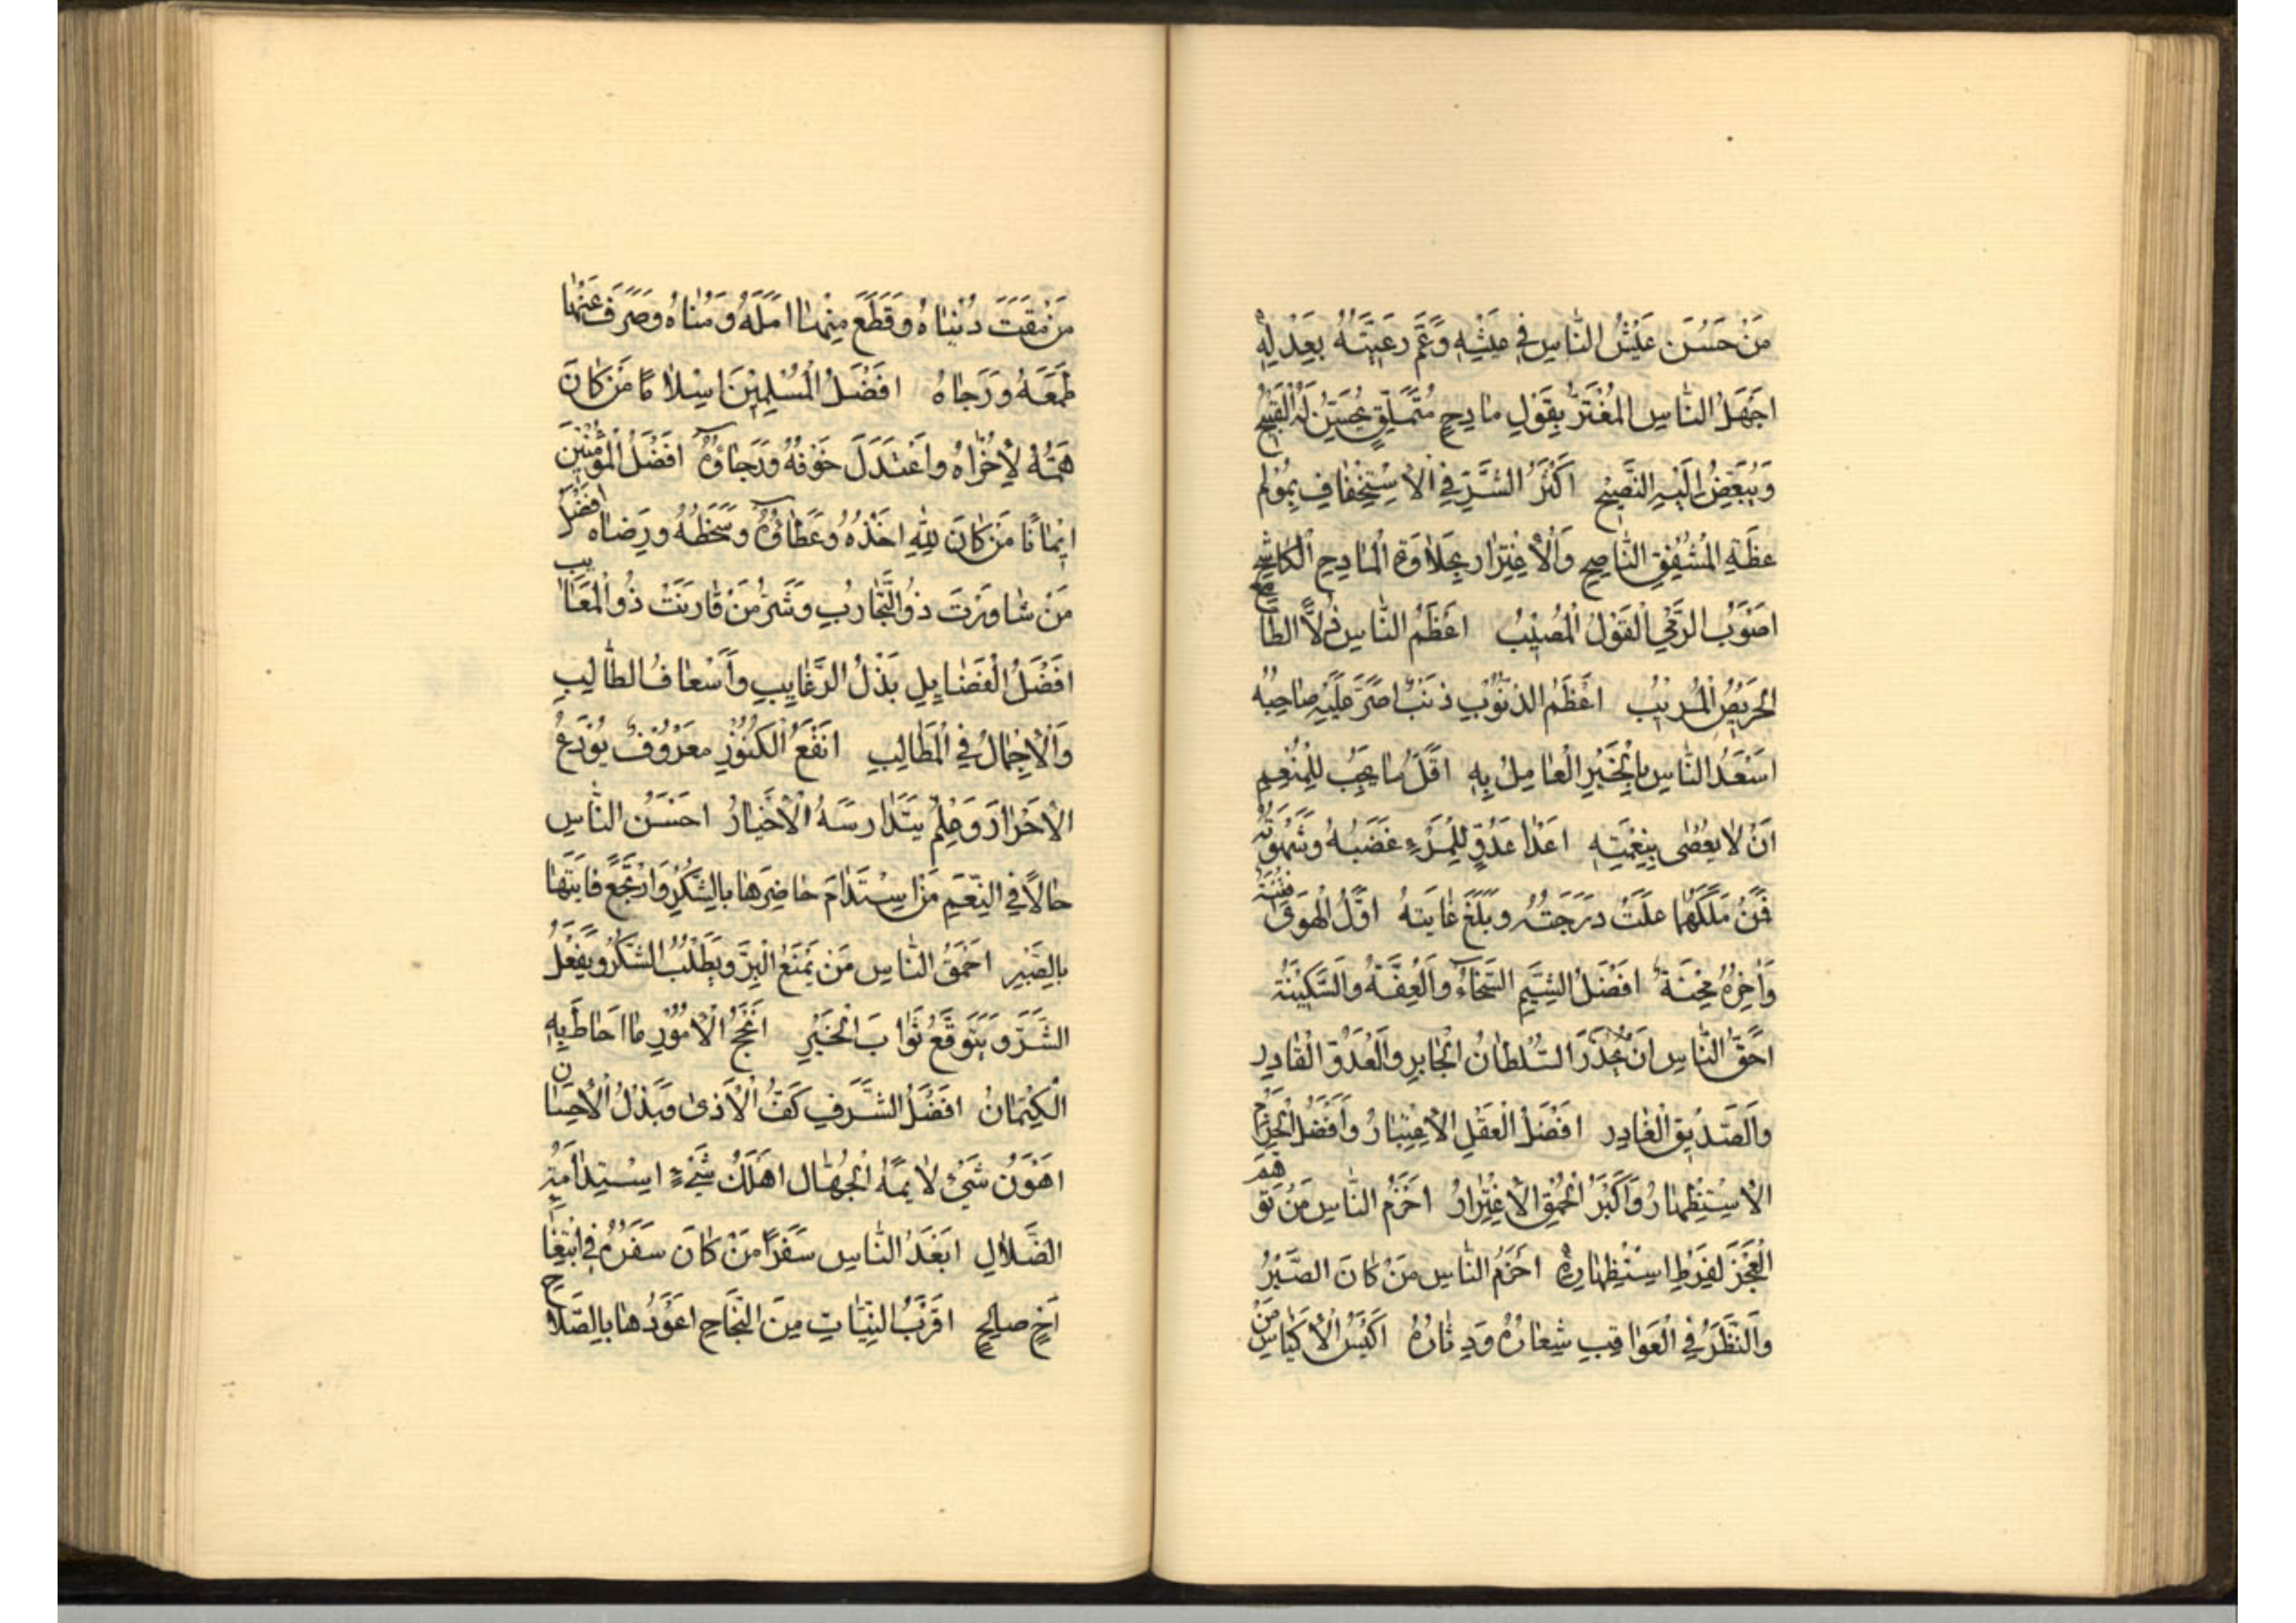 مَنْ حَسُنَ عَيْشُ النَّاسِ فِي عَيْشِهِ وَعَمَّ رَعِيَّتَهُ بِعَدْلِهِ
اَجْهَلُ النَّاسِ المُغْتَرُّ بِقَوْلِ مَادِحٍ مُتَمَلِّقٍ يُحَسِّنُ لَهُ الْقَبِيحَ
وَيُبَغِّضُ اِلَيْهِ النَّصِيحَ اَكْبَرُ الشَّرِّ فِي الْاِسْتِخْفَافِ بِمُولِمِ
عِظَةِ الْمُشْفِقِ النَّاصِحِ وَالْاِغْتِرَارِ بِحَلَاوَةِ الْمَادِحِ الْكَاشِحِ
اَصْوَبُ الرَّمْيِ الْقَوْلُ الْمُصِيبُ اَعْظَمُ النَّاسِ ذُلًّا الطَّامِعُ
الْحَرِيصُ الْمُرِيبُ اَعْظَمُ الذُّنُوبِ ذَنْبٌ اَصَرَّ عَلَيْهِ صَاحِبُهُ
اَسْعَدُ النَّاسِ بِالْخَيْرِ الْعَامِلُ بِهِ اَقَلُّ مَا يَجِبُ لِلْمُنْعِمِ
اَنْ لَا يُعْصٰى بِنِعْمَتِهِ اَعْدَا عَدُوٍّ لِلْمَرْءِ غَضَبُهُ وَشَهْوَتُهُ
فَمَنْ مَلَكَهُمَا عَلَتْ دَرَجَتُهُ وَبَلَغَ غَايَتَهُ اَوَّلُ الْهَوٰى فِتْنَةٌ
وَآخِرُهُ مِحْنَةٌ اَفْضَلُ الشِّيَمِ السَّخَاءُ وَالْعِفَّةُ وَالسَّكِينَةُ
اَحَقُّ النَّاسِ اَنْ يُحْذَرَ السُّلْطَانُ الْجَابِرِ وَالْعَدُوُّ الْقَادِرِ
وَالصَّدِيقُ الْغَادِرِ اَفْضَلُ الْعَقْلِ الْاِعْتِبَارُ وَاَفْضَلُ الْحَزْمِ
الْاِسْتِظْهَارُ وَاَكْبَرُ الْحُمْقِ الْاِغْتِرَارُ اَحْزَمُ النَّاسِ مَنْ تَوَهَّمَ
الْعَجْزَ لِفَرْطِ اسْتِظْهَارِهِ اَحْزَمُ النَّاسِ مَنْ كَانَ الصَّبْرُ
وَالنَّظَرُ فِي الْعَوَاقِبِ شِعَارُهُ وَدِثَارُهُ اَكْيَسُ الْاَكْيَاسِ مَنْ
مَنْ مَقَتَ دُنْيَاهُ وَقَطَعَ مِنْهَا اَمَلَهُ وَمُنَاهُ وَصَرَفَ عَنْهَا
طَمَعَهُ وَرَجَاهُ اَفْضَلُ الْمُسْلِمِيْنَ اِسْلَامًا مَنْ كَانَ
هَمُّهُ لِاُخْرَاهُ وَاعْتَدَلَ خَوْفُهُ وَرَجَاؤُهُ اَفْضَلُ الْمُؤْمِنِينَ
اِيْمَانًا مَنْ كَانَ لِلّٰهِ اَخْذُهُ وَعَطَاؤُهُ وَسَخَطُهُ وَرِضَاهُ اَفْضَلُ
مَنْ شَاوَرْتَ ذُو التَّجَارُبِ وَشَرُّ مَنْ قَارَنْتَ ذُو الْمَعَايِبِ
اَفْضَلُ الْفَضَايِلِ بَذْلُ الرَّغَايِبِ وَاَسْعَافُ الطَّالِبِ
وَالْاِجْمَالُ فِي الْمَطَالِبِ اَنْفَعُ الْكُنُوْزِ مَعْرُوفٌ يُوْدَعُ
الْاَحْرَارَ وَعِلْمٌ يَتَدَارَسَهُ الْاَخْيَارُ اَحْسَنُ النَّاسِ
حَالًا فِي النِّعَمِ مَنْ اِسْتَدَامَ حَاضِرَهَا بِالشُّكْرِ وَارْتَجَعَ فَايِتَهَا
بِالصَّبْرِ اَحْمَقُ النَّاسِ مَنْ يَمْنَعُ الْبِرَّ وَيَطْلُبُ الشُّكْرَ وَيَفْعَلُ
الشَّرَّ وَيَتَوَقَّعُ ثَوَابَ الْخَيْرِ اَنْجَحُ الْاُمُوْرِ مَا اَحَاطَ بِهِ
الْكِتْمَانُ اَفْضَلُ الشَّرَفِ كَفُّ الْاَذىٰ وَبَذْلُ الْاِحْسَانِ
اَهْوَنُ شَيْءٍ لَايِمَةُ الْجُهَّالِ اَهْلَكُ شَيْءٍ اِسْتِدَامَةُ
الضَّلَالِ اَبْعَدُ النَّاسِ سَفَرًا مَنْ كَانَ سَفَرُهُ فِي ابْتِغَا
اَخٍ صَالِحٍ اَقْرَبُ النِّيَّاتِ مِنَ النَّجَاحِ اَعْوَدُهَا بِالصَّلَاحِ